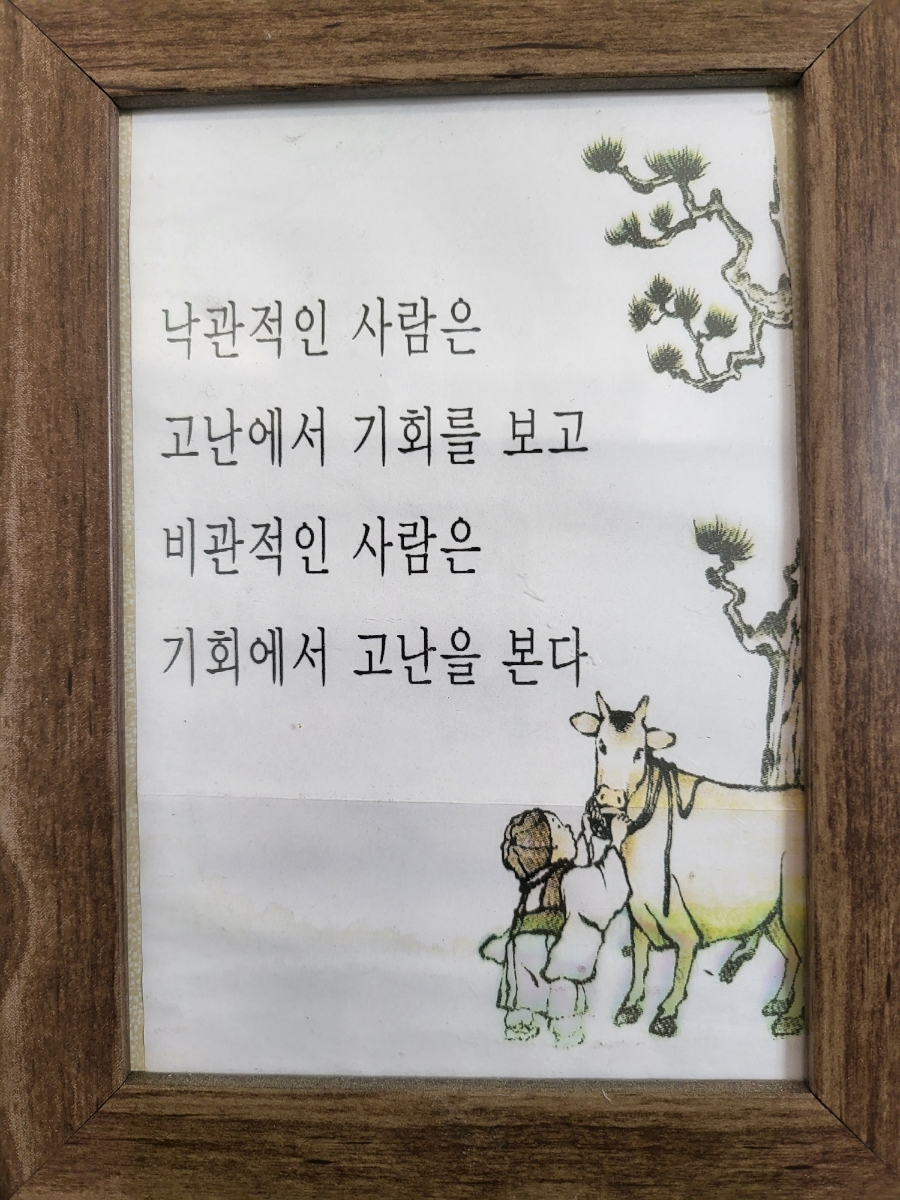 낙관적인 사람은
고난에서 기회를 보고
비관적인 사람은
기회에서 고난을 본다